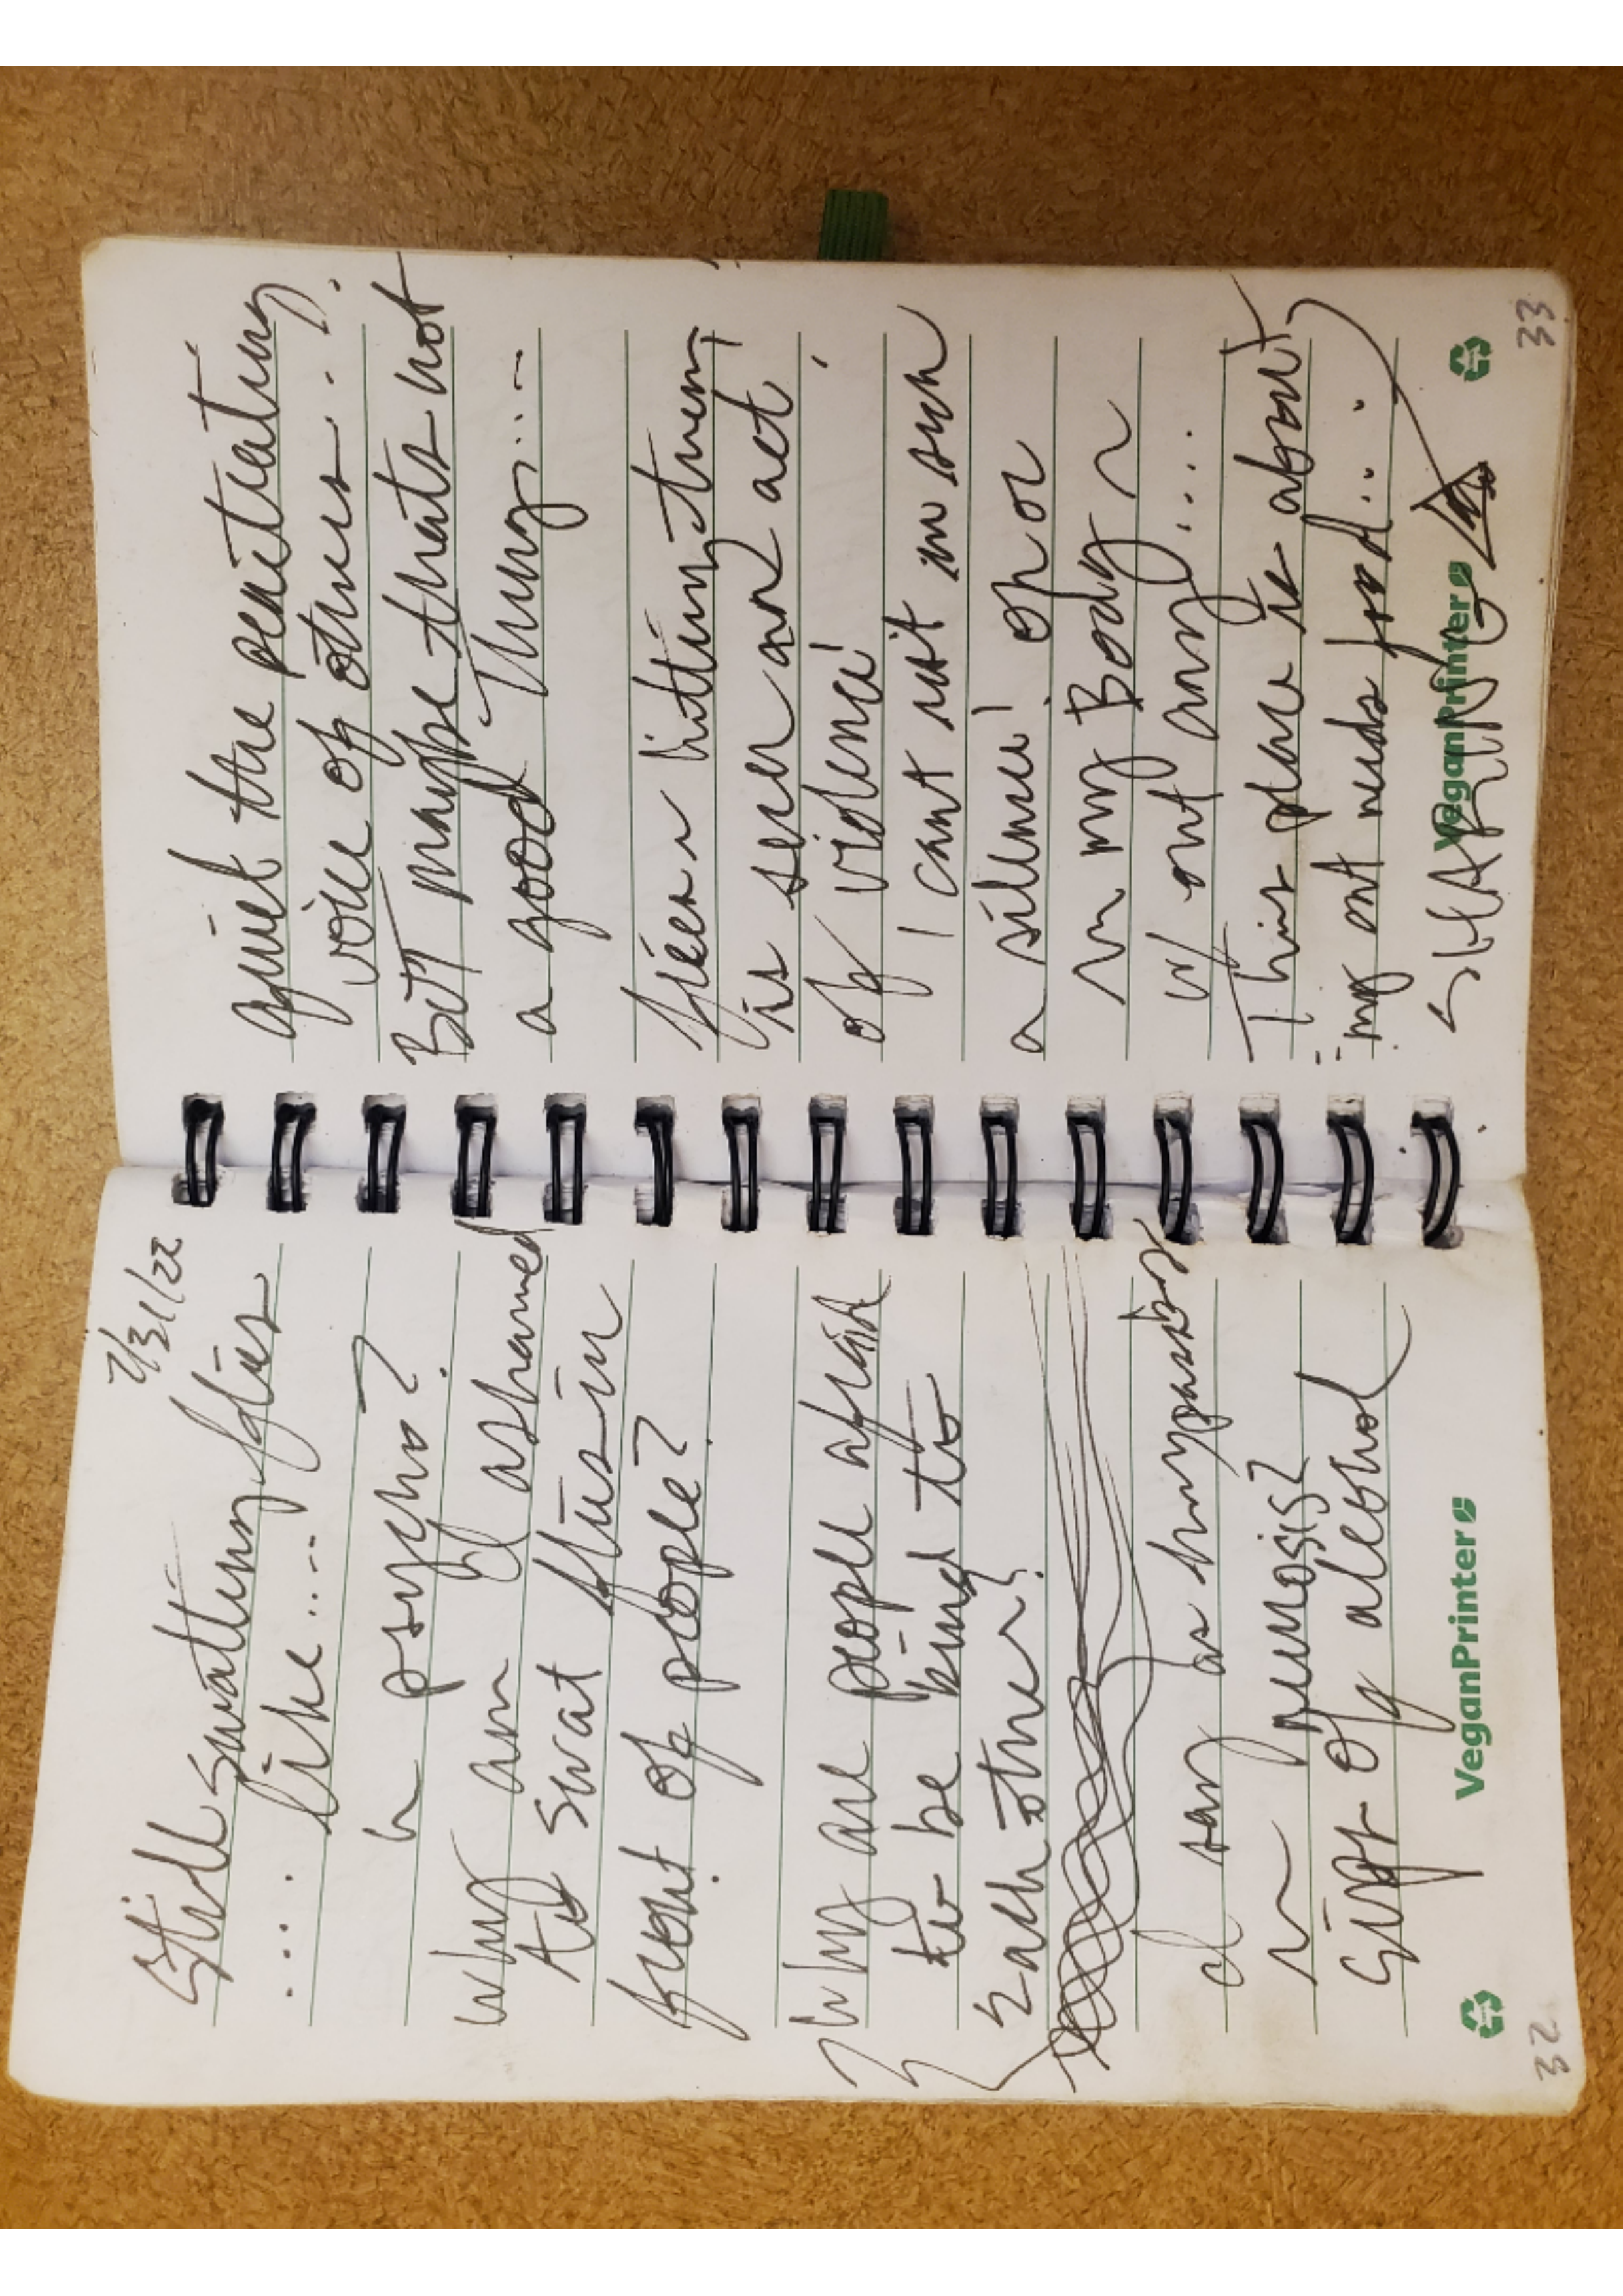 7/31/22
Still swatting flies
.... like ....
a psycho?
why am I ashamed
to swat flies in
front of people?
Why are people afraid
to be kind to
each other?
I say as hypnosis?
Gift of alcohol
VeganPrinter
32
quiet the
voice of others...
But maybe thats not
a good Thing....
is seen an act
of violence!
I cant sit in such
a silence! or
in my Body
w/ out any....
This place is about
my needs food...
SHARING
VeganPrinter
33